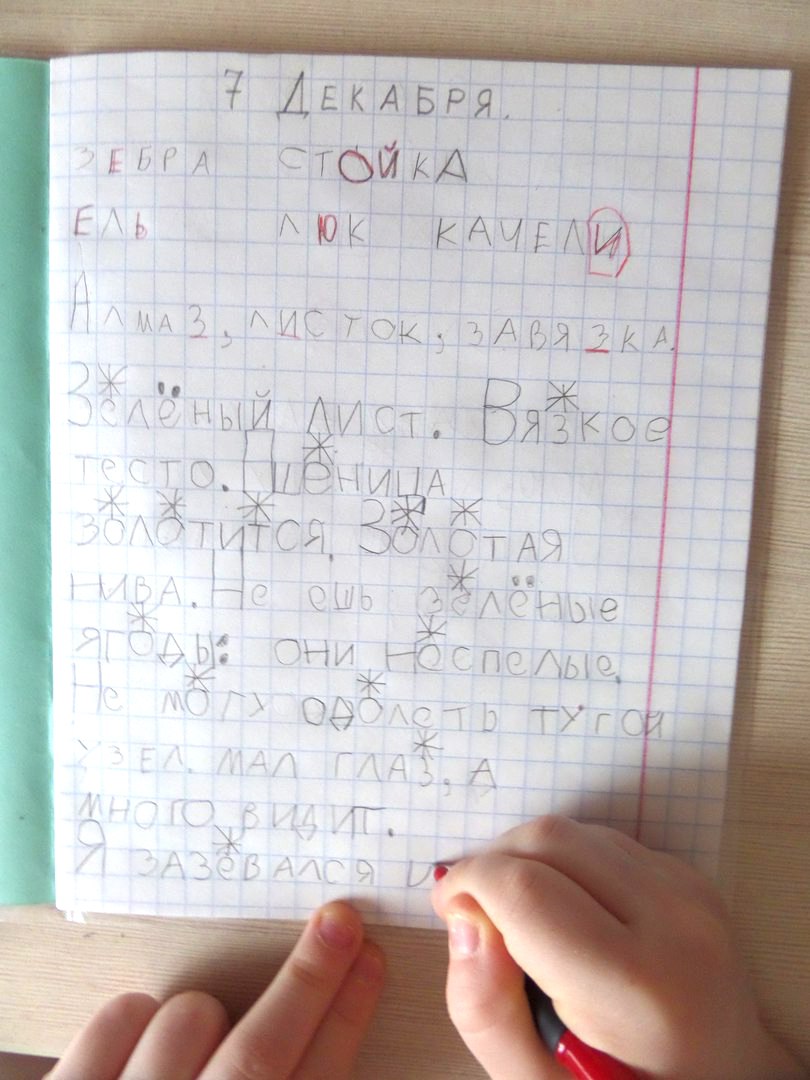 7 Декабря.
ЗЕБРА СТОЙКА
ЕЛЬ ЛЮК КАЧЕЛИ
Алмаз, листок, завязка.
Зелёный лист. Вязкое
тесто. Пшеница
золотится. Золотая
нива. Не ешь зелёные
ягоды: они неспелые.
Не могу одолеть тугой
узел. мал глаз, а
много видит.
Я зазевался и